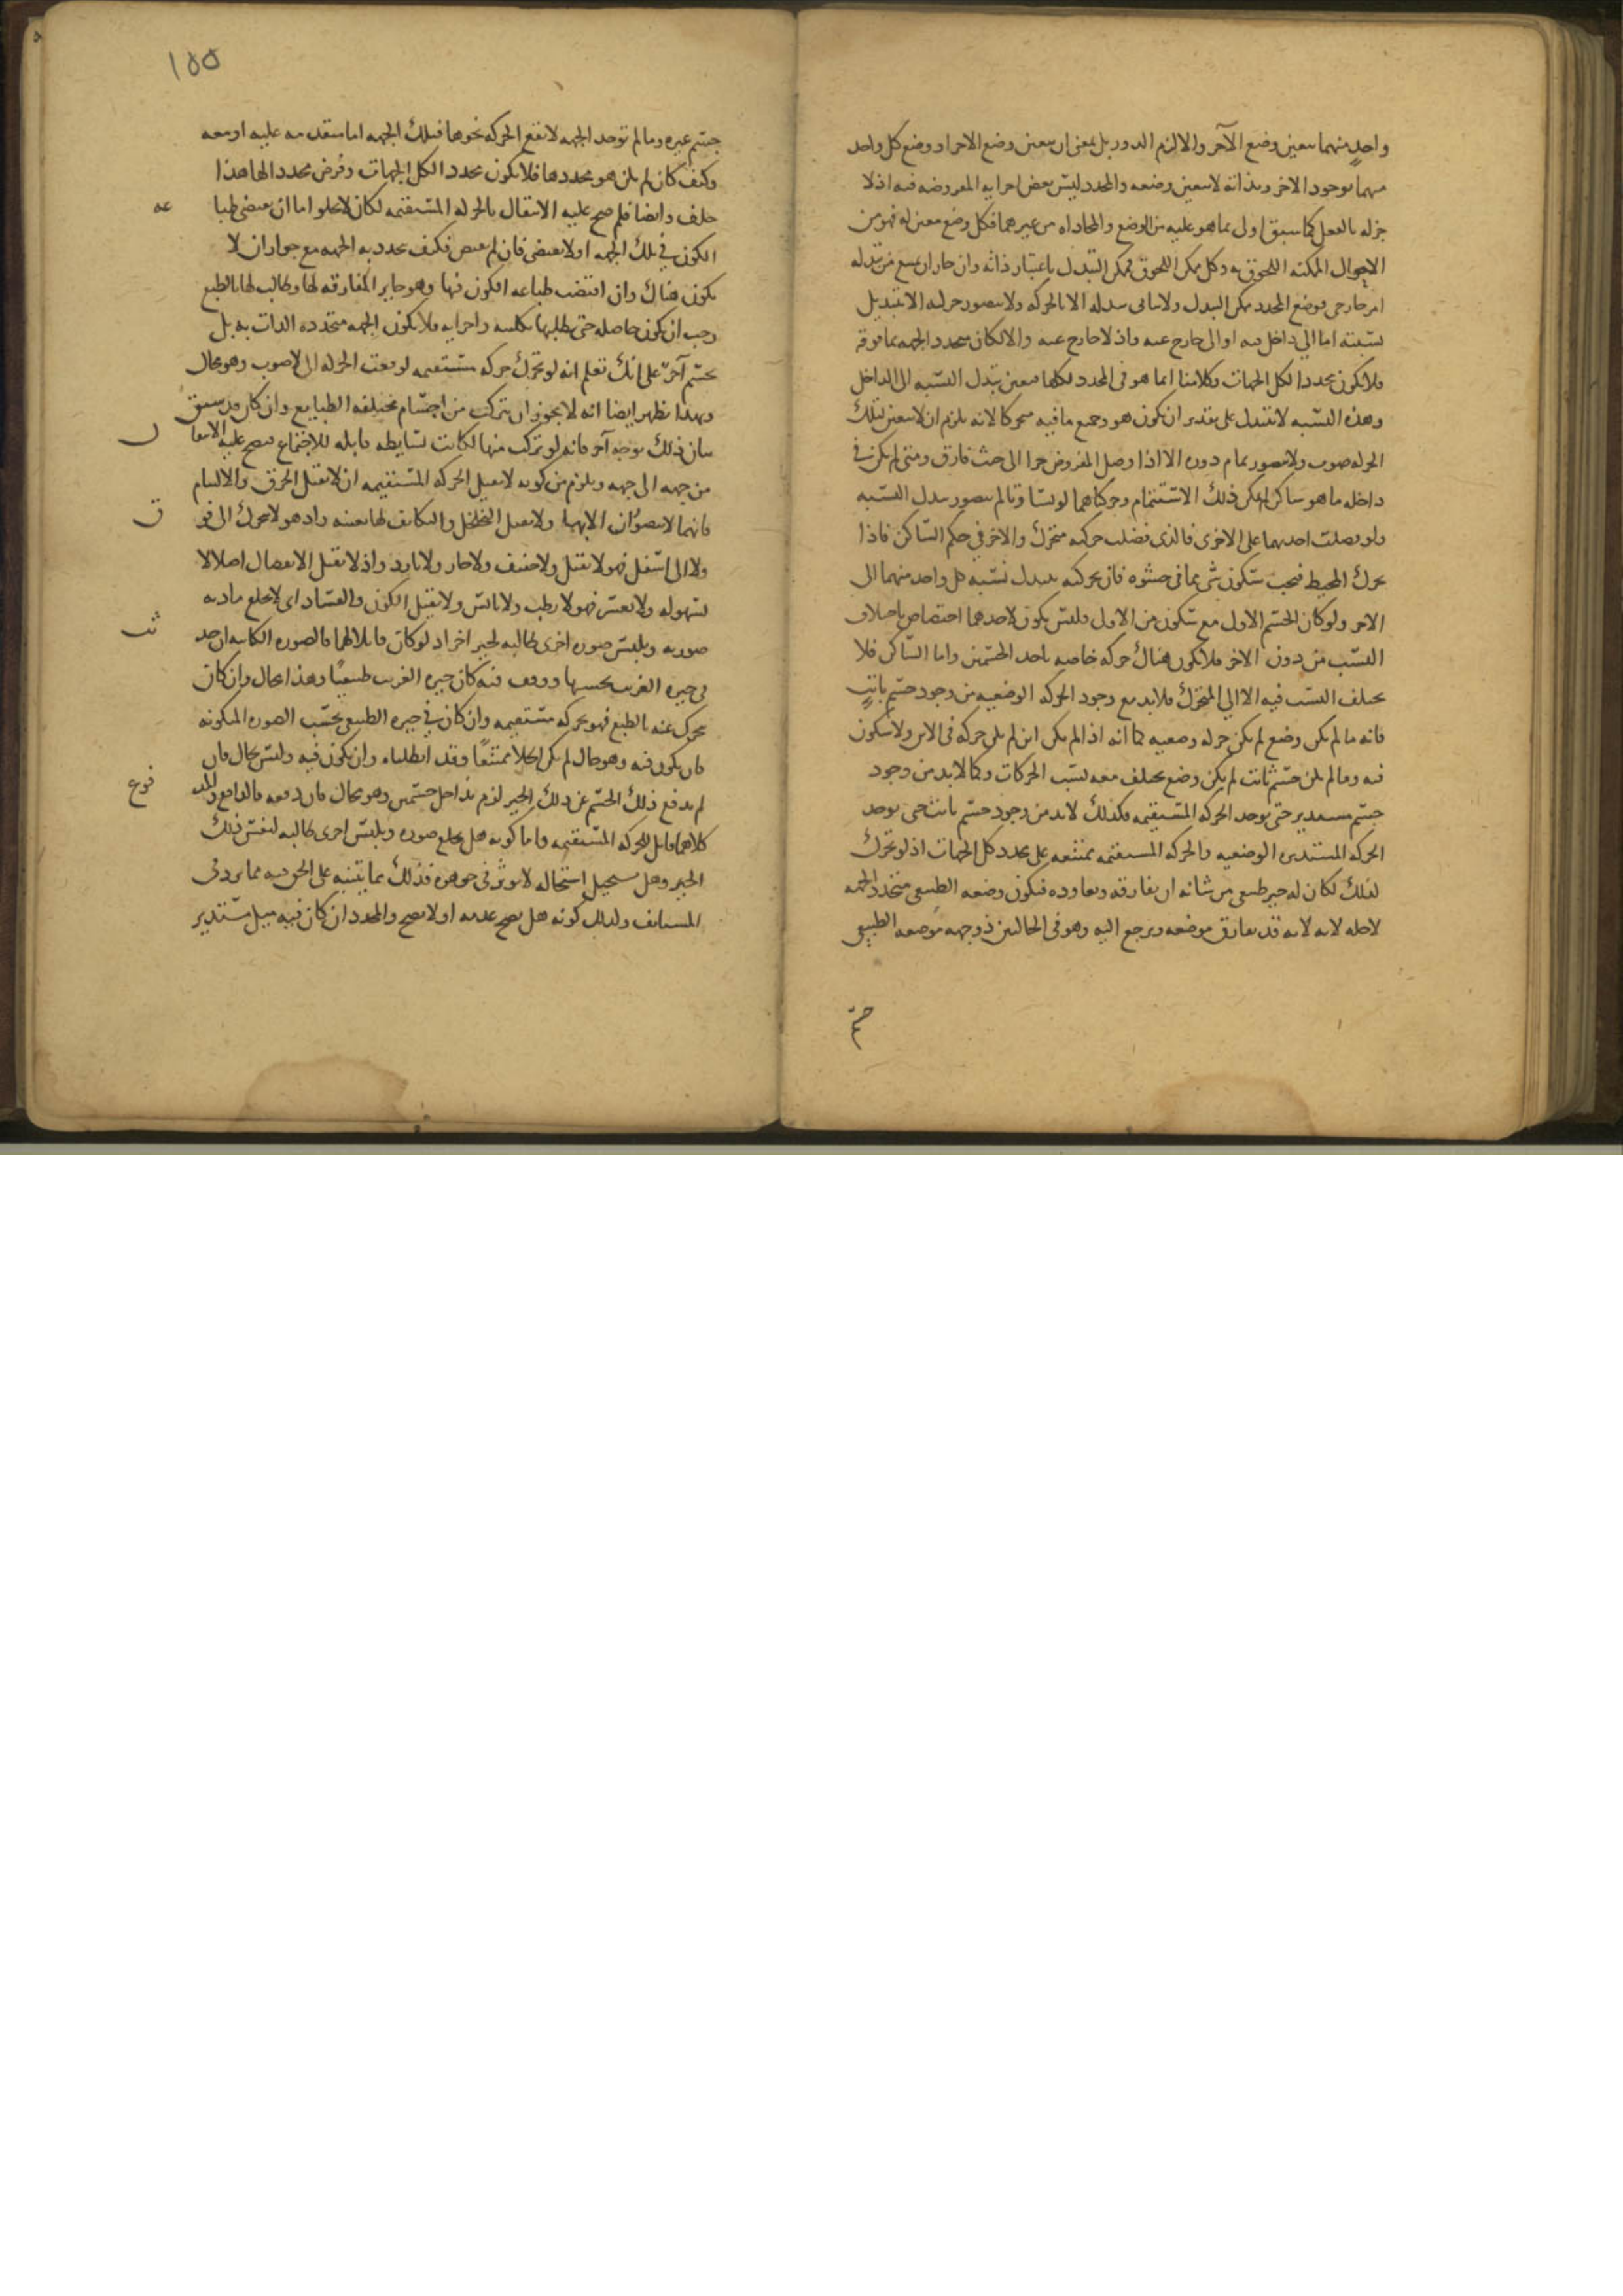 واحد منهما بتعين وضع الآخر والا لزم الدور بل بمعنى ان تعين وضع الاجزاء ووضع كل واحد
منهما بوجود الاخر وبذاته لا بتعين وضعه والمحدد ليس بعض اجزايه المفروضه فيه اذ لا
جزء له بالفعل كما سبق اولى بما هو عليه من الوضع والمحاذاه من غيرهما فكل وضع معين له فهو من
الاحوال الممكنه اللحوق به وكل ممكن اللحوق فممكن التبدل باعتبار ذاته وان جاز ان يمنع من تبدله
امر خارجي فوضع المحدد ممكن التبدل ولا يتاتى تبدله الا بالحركه ولا يتصور حركته الا بتبديل
نسبته اما الى داخل فيه او الى خارج عنه واذ لا خارج عنه والا لكان محدد الجهه بما فوقه
فلا يكون محددا لكل الجهات وكلامنا انما هو في المحدد لكلها فتعين تبدل النسبه الى الداخل
وهذه النسبه لا تتبدل على تقدير ان يكون هو وجميع ما فيه متحركا لانه يلزم ان لا يتعين لتلك
الحركه صوب ولا يتصور تمام دوره الا اذا وصل المفروض جزا الى حيث فارق ومتى لم يكن في
داخله ما هو ساكن لم يكن ذلك الاستتمام وحركتاهما لو تساوتا لم يتصور تبدل النسبه
ولو فضلت احديهما على الاخرى فالذي فضلت حركته متحرك والاخر في حكم الساكن فاذا
تحرك المحيط فيجب سكون شى مما في حشوه فان تحركه تبدل نسبه كل واحد منهما الى
الاخر ولو كان الجسم الاول مع سكون من الاول فليس يكون لاحدهما اختصاص باختلاف
النسب من دون الاخر فلا يكون هناك حركه خاصه باحد الجسمين واما الساكن فلا
تختلف النسب فيه الا الى المتحرك فلا بد مع وجود الحركه الوضعيه من وجود جسم ثابت
فانه ما لم يكن وضع لم يكن حركه وضعيه كما انه اذا لم يكن اين لم يكن حركه في الاين ولا سكون
فيه وما لم يكن جسم ثابت لم يكن وضع تختلف معه نسب الحركات وكما لا بد من وجود
جسم مستدير حتى توجد الحركه المستقيمه فكذلك لا بد من وجود جسم ثابت حتى توجد
الحركه المستديره الوضعيه والحركه المستقيمه ممتنعه على محدد كل الجهات اذ لو تحرك
لذلك لكان له حيز طبيعي من شانه ان يفارقه ويعاوده فيكون وضعه الطبيعي متحدد الجهه
لاجله لا به لانه قد يفارق موضعه ويرجع اليه وهو في الحالين ذو جهه موضعه الطبيعي
١٥٥
جسم غيره وما لم توجد الجهه لا تقع الحركه نحوها فتلك الجهه اما متقدمه عليه او معه
وكيف كان لم يكن هو محددها فلا يكون محددا لكل الجهات وفرض محددا لها هذا
خلف وايضا فلو صح عليه الانتقال بالحركه المستقيمه لكان لا يخلو اما ان يقتضي طباعه
الكون في تلك الجهه او لا يقتضي فان لم يقتض فكيف تحدد به الجهه مع جواز ان لا
يكون هناك وان اقتضت طباعه الكون فيها وهو جايز المفارقه لها وطالب لها بالطبع
وجب ان يكون حاصله حتى يطلبها بكليته واجزايه فلا يكون الجهه متحدده الذات به بل
بجسم آخر على انك تعلم انه لو تحرك حركه مستقيمه لوقعت الحركه الى لا صوب وهو محال
وبهذا يظهر ايضا انه لا يجوز ان يتركب من اجسام مختلفه الطبايع وان كان قد سبق
بيان ذلك بوجه آخر فانه لو تركب منها لكانت بسايطه قابله للاجتماع فيصح عليه الانتقال
من جهه الى جهه ويلزم من كونه لا يقبل الحركه المستقيمه ان لا يقبل الخرق والالتيام
فانهما لا يتصوران الا بها ولا يقبل التخلخل والتكاثف لها بعينه واذ هو لا يتحرك الى فوق
ولا الى اسفل فهو لا ثقيل ولا خفيف ولا حار ولا بارد واذ لا يقبل الانفصال اصلا لا
بسهوله ولا بعسر فهو لا رطب ولا يابس ولا يقبل الكون والفساد اى لا تخلع مادته
صورته وتلبس صوره اخرى طالبه لحيز اخر اذ لو كان قابلا لهما فالصوره الكاينه ان حدثت
في حيزه الغريب بحسبها ووقف فيه كان حيزه الغريب طبيعيا وهذا محال وان كان
تحرك عنه بالطبع فهو بحركه مستقيمه وان كان في حيزه الطبيعي بحسب الصوره المتكونه
فان يكون فيه وهو خال لم يكن الخلا ممتنعا وقد ابطلناه وان يكون فيه وليس بخال فان
لم يدفع ذلك الجسم عن ذلك الحيز لزم تداخل جسمين وهو محال فان دفعه فالدافع والمدفوع
كلاهما قابل للحركه المستقيمه واما كونه هل يخلع صوره ويلبس اخرى طالبه لنفس ذلك
الحيز وهل يستحيل استحاله لا توثر في جوهره فذلك مما يتنبه على الحق فيه مما يرد في
المستانف وكذلك كونه هل يصح عدمه او لا يصح والمحدد ان كان فيه ميل مستدير